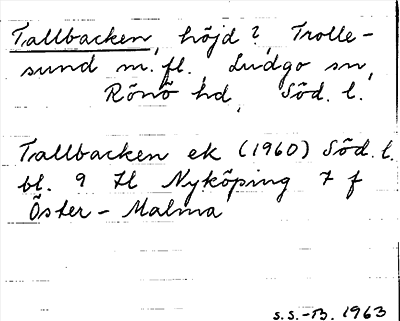 Tallbacken, höjd?, Trolle-
sund m.fl., Ludgo sn,
Rönö hd, Söd. l.
Tallbacken ek (1960) Söd. l.
bl. 9 Nyköping 7 f
Öster-Malma
s.s.-B. 1963